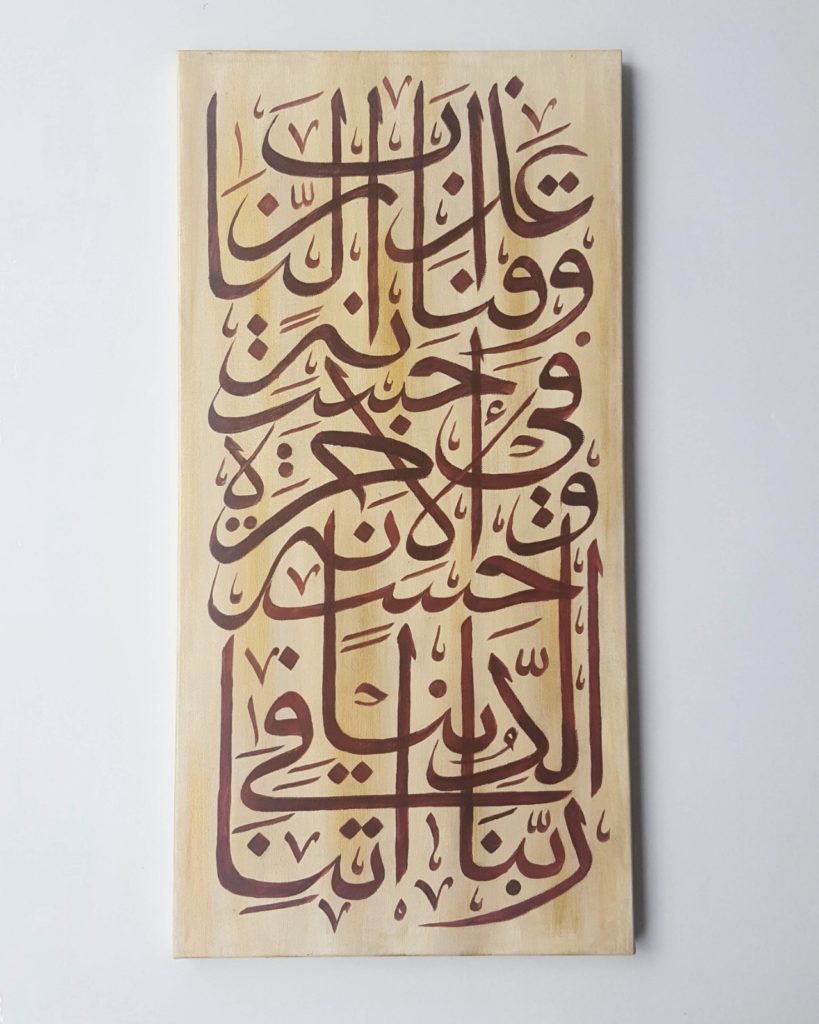 رَبَّنَا اٰتِنَا فِي
الدُّنْيَا
حَسَنَةً
وَفِي الْاٰخِرَةِ
حَسَنَةً
وَقِنَا
عَذَابَ النَّارِ